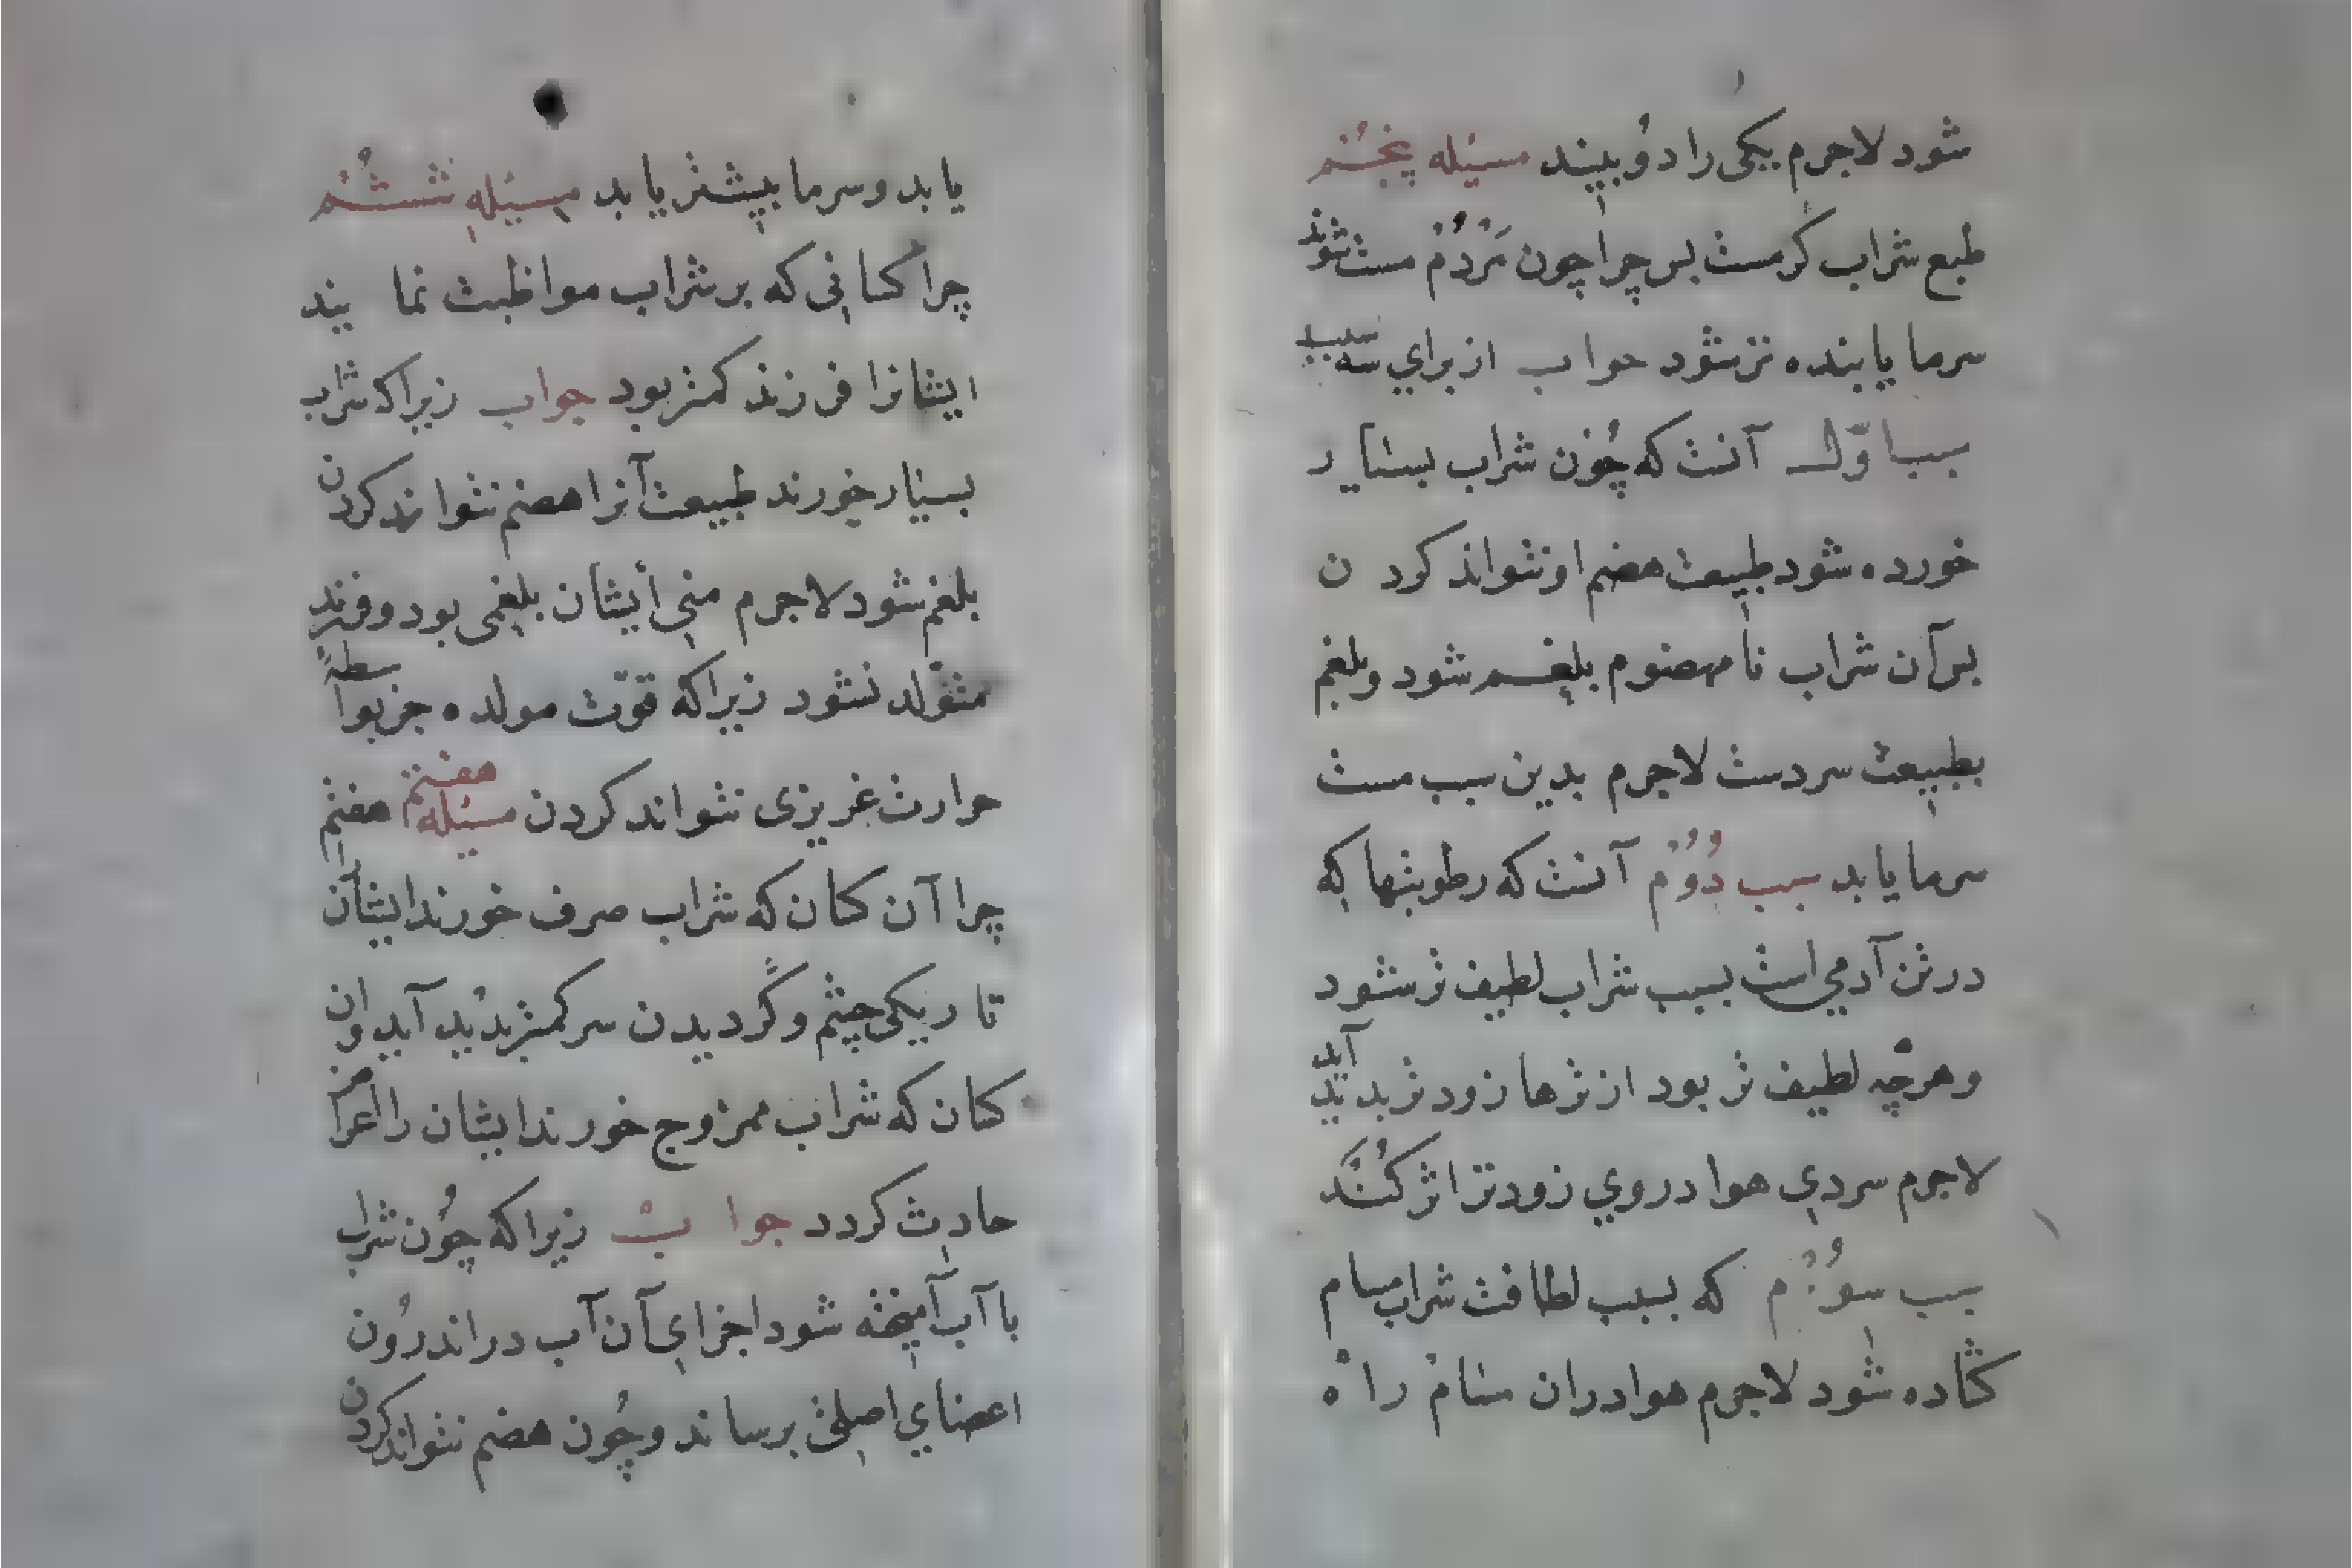 شود لاجرم یکی را دو بیند مسئله پنجم
طبع شراب گرمست بس چرا چون مردم مست شوند
سرما یابنده تر شود جواب از برای سه سبب
سبب اوّل آنست که چون شراب بسیار
خورده شود طبیعت هضم او نتواند کردن
بس آن شراب نامهضوم بلغم شود و بلغم
بطبیعت سردست لاجرم بدین سبب مست
سرما یابد سبب دوم آنست که رطوبتها که
در تن آدمی است بسبب شراب لطیف تر شود
و هرچه لطیف تر بود از ترها زودتر بدید آید
لاجرم سردی هوا در وی زودتر اثر کند
سبب سوم که بسبب لطافت شراب مسام
کشاده شود لاجرم هوا دران مسام راه
یابد و سرما بیشتر یابد مسئله ششم
چرا کسانی که بر شراب مواظبت نمایند
ایشانرا فرزند کمتر بود جواب زیرا که شراب
بسیار خورند طبیعت آنرا هضم نتواند کردن
بلغم شود لاجرم منی ایشان بلغمی بود و فرزند
متولد نشود زیرا که قوّت مولده جز بواسطه
حرارت غریزی نتواند کردن مسئله هفتم هفتم
چرا آن کسان که شراب صرف خورند ایشان را
تاریکی چشم و گردیدن سر کمتر بدید آید و ان
کسان که شراب ممزوج خورند ایشان را
حادث کردد جواب زیرا که چون شراب
با آب آمیخته شود اجزای آن آب در اندرون
اعضای اصلی برساند و چون هضم نتواند کردن